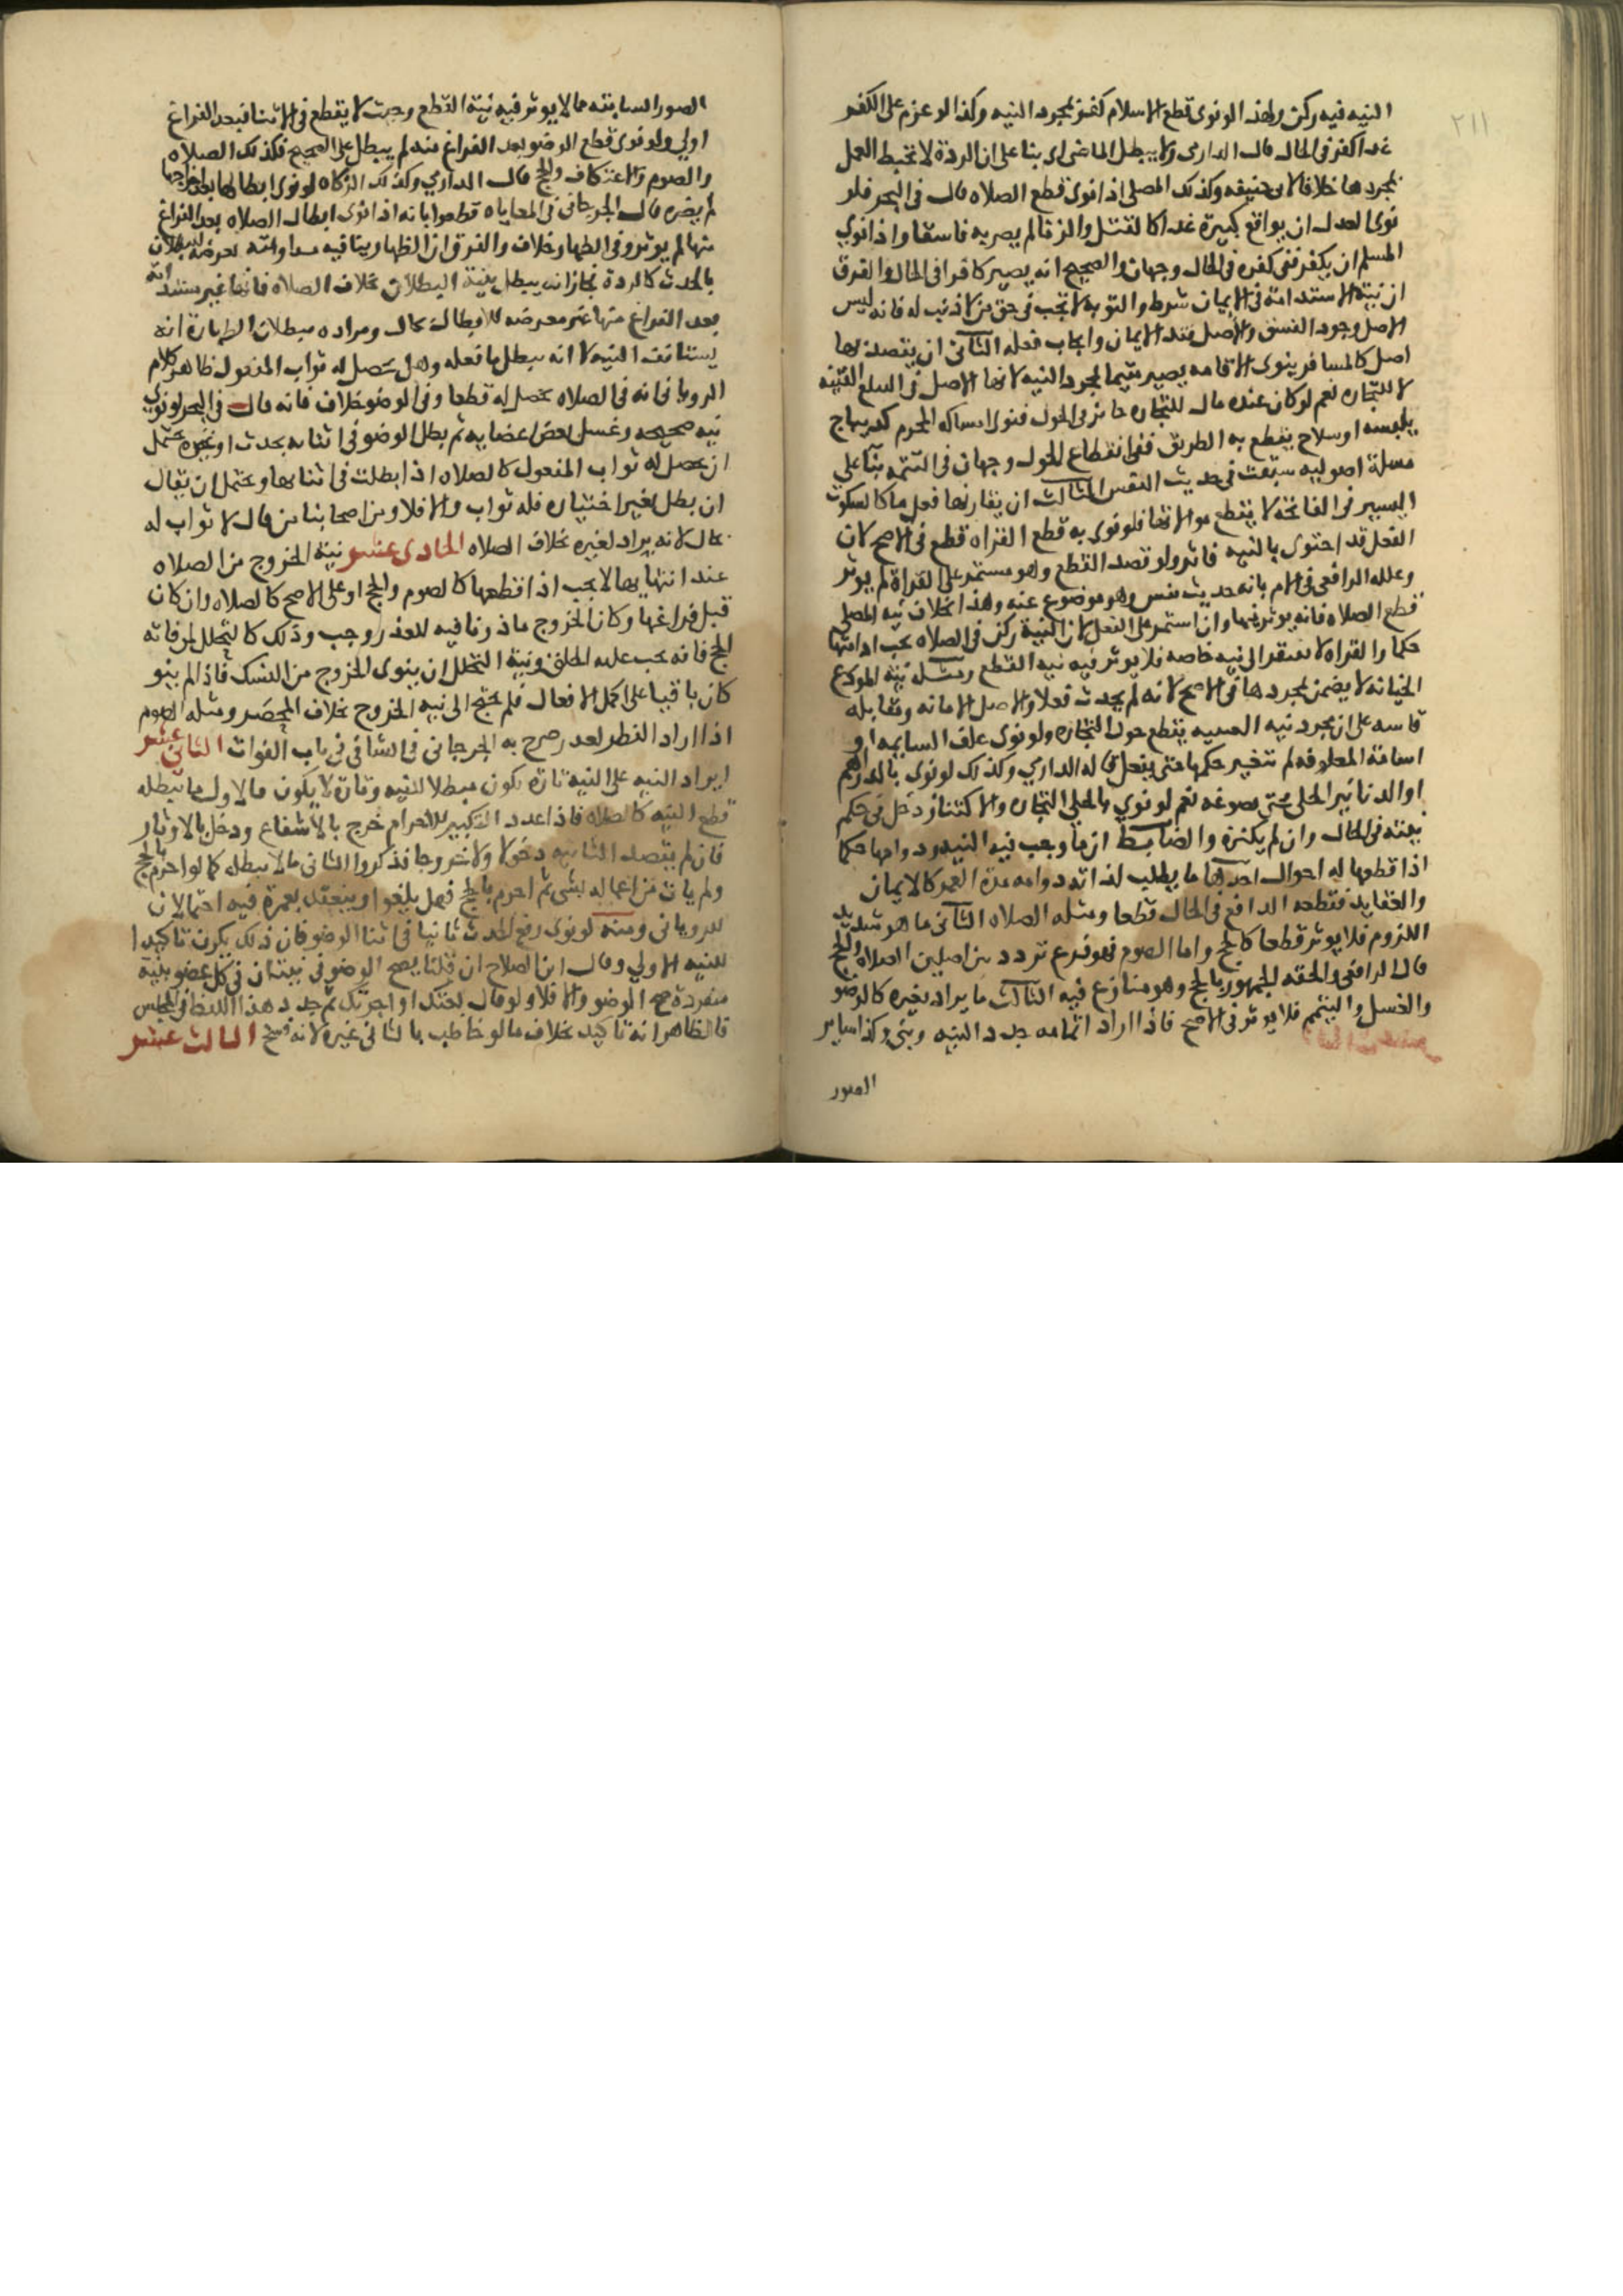 ٢١١
النيه فيه ركن ولهذا لو نوى قطع الاسلام كفر بمجرد النيه وكذا لو عزم على الكفر
غدا كفر في الحال قال الدارمي ولا يبطل الماضي اي بنا على ان الردة لا تحبط العمل
بمجردها خلافا لابي حنيفه وكذلك المصلى اذا نوى قطع الصلاه قال في البحر فلو
نوى العدل ان يواقع كبيرة غدا كالقتل والزنا لم يصر به فاسقا واذا نوي
المسلم ان يكفر ففى كفره في الحال وجهان والصحيح انه يصير كافرا في الحال والفرق
ان نية الاستدامة في الايمان شرط والتوبه لا تجب في حق من لا ذنب له فانه ليس
الاصل وجود الفسق والاصل الايمان وايجاب فعله الثانى ان يقصد بها
اصل كالمسافر ينوى الاقامه يصير مقيما بمجرد النيه لانها الاصل في السلع القنيه
لا للتجاره نعم لو كان عنده مال للتجاره جائز في الحول فنوى امساكه المحرم كديباج
يلبسه او سلاح يقطع به الطريق ففى انقطاع الحول وجهان في التتمه بنا على
مسلة اصوليه سبقت في حديث النفس الثالث ان يقارنها فعل ما كالسكوت
اليسير في الفاتحة لا يقطع موالاتها فلو نوى به قطع القراه قطع في الاصح لان
الفعل قد احتوى بالنيه فاثر ولو قصد القطع وهو مستمر على القراة لم يوثر
وعلله الرافعى في الام بانه حديث نفس وهو موضوع عنه وهذا بخلاف نيه المصلى
قطع الصلاه فانه يوثر فيها وان استمر على الفعل لان النية ركن في الصلاه يجب ادامتها
حكما والقراه لا تفتقر الى نيه خاصه فلا يوثر فيه نيه القطع ومثله نية المودع
الخيانه لا يضمن بمجردها في الاصح لانه لم يحدث فعلا والاصل الامانه ومقابله
قاسه على ان مجرد نيه القنيه يقطع حول التجاره ولو نوى علف السايمه او
اسامة المعلوفه لم تتغير حكمها حتى يفعل قاله الدارمي وكذلك لو نوي بالدراهم
او الدنانير الحلى حتى يصوغه نعم لو نوي بالحلى التجاره والاكتناز دخل في حكم
نيته في الحال وان لم يكنزه والضابط ان ما وجب فيه النيه ودوامها حكما
اذا قطعها له احوال احدها ما يطلب لذاته دوامه مدة العمر كالايمان
والعقايد فقطعه الدافع في الحال قطعا ومثله الصلاه الثانى ما هو شديد
اللزوم فلا يوثر قطعا كالحج واما الصوم فهو فرع تردد بين اصلين الصلاه والحج
قال الرافعى والحقه الجمهور بالحج وهو منازع فيه الثالث ما يراد لغيره كالوضو
والغسل والتيمم فلا يوثر في الاصح فاذا اراد اتمامه جدد النيه وبنى وكذا ساير
الصور
الصور السابقه مما لا يوثر فيه نية القطع وحيث لا يقطع في الاثنا فبعد الفراغ
اولى ولو نوى قطع الوضو بعد الفراغ منه لم يبطل على الصحيح فكذلك الصلاه
والصوم والاعتكاف والحج قال الدارمي وكذلك الزكاه لو نوى ابطالها بعد اخراجها
لم يضره قال الجرجاني في المعاياه قطعوا بانه اذا نوى ابطال الصلاه بعد الفراغ
منها لم يوثر وفى الطهاره خلاف والفرق ان الطهاره ينافيه
بالحدث كالردة فجاز ان يبطل بنية البطلان بخلاف الصلاه فانها غير
بعد الفراغ منها غير معرضه للابطال بحال ومراده ببطلان الطهارة انه
يستانف النيه لا انه يبطل ما فعله وهل يحصل له ثواب المفعول ظاهر كلام
الرويانى انه في الصلاه يحصل له قطعا وفي الوضو خلاف فانه قال في البحر لو نوى
نيه صحيحه وغسل بعض اعضايه ثم بطل الوضو في اثنايه بحدث او غيره يحتمل
ان يحصل له ثواب المفعول كالصلاه اذا بطلت في اثنايها ويحتمل ان يقال
ان بطل بغير اختياره فله ثواب والا فلا ومن اصحابنا من قال لا ثواب له
بحال لانه يراد لغيره بخلاف الصلاه الحادى عشر نية الخروج من الصلاه
عند انتهايها لا يجب اذا قطعها كالصوم والحج او على الاصح كالصلاه وان كان
قبل فراغها وكان الخروج ماذونا فيه للعذر وجب وذلك كالتحلل لمن فاته
الحج فانه يجب عليه الحلق ونية التحلل ان ينوى الخروج من النسك فاذا لم ينو
كان باقيا على اكمل الافعال فلم يحتج الى نيه الخروج بخلاف المحصر ومثله الصوم
اذا اراد الفطر لعذر صرح به الجرجانى في الشافى في باب الفوات الثانى عشر
ايراد النيه على النية تارة يكون مبطلا للنيه وتارة لا يكون فالاول ما يبطله
قطع النيه كالصلاه فاذا عدد التكبير للاحرام خرج بالاشفاع ودخل بالاوتار
فان لم يقصد الثانيه دخولا ولا خروجا فذكروا الثانى ما لا يبطله كما لو احرم بالحج
ولم يات من اعماله بشى ثم احرم بالحج فهل يلغوا او ينعقد بعمرة فيه احتمالان
للرويانى ومنه لو نوى رفع الحدث ثانيا في اثنا الوضو فان ذلك يكون تاكيدا
للنيه الاولي وقال ابن الصلاح ان قلنا يصح الوضو في نيتان في كل عضو بنية
منفردة صح الوضو والا فلا ولو قال بعتك او اجرتك ثم جدد هذا اللفظ في المجلس
فالظاهر انه تاكيد بخلاف ما لو خاطب بالثانى غيره لانه فسخ الثالث عشر